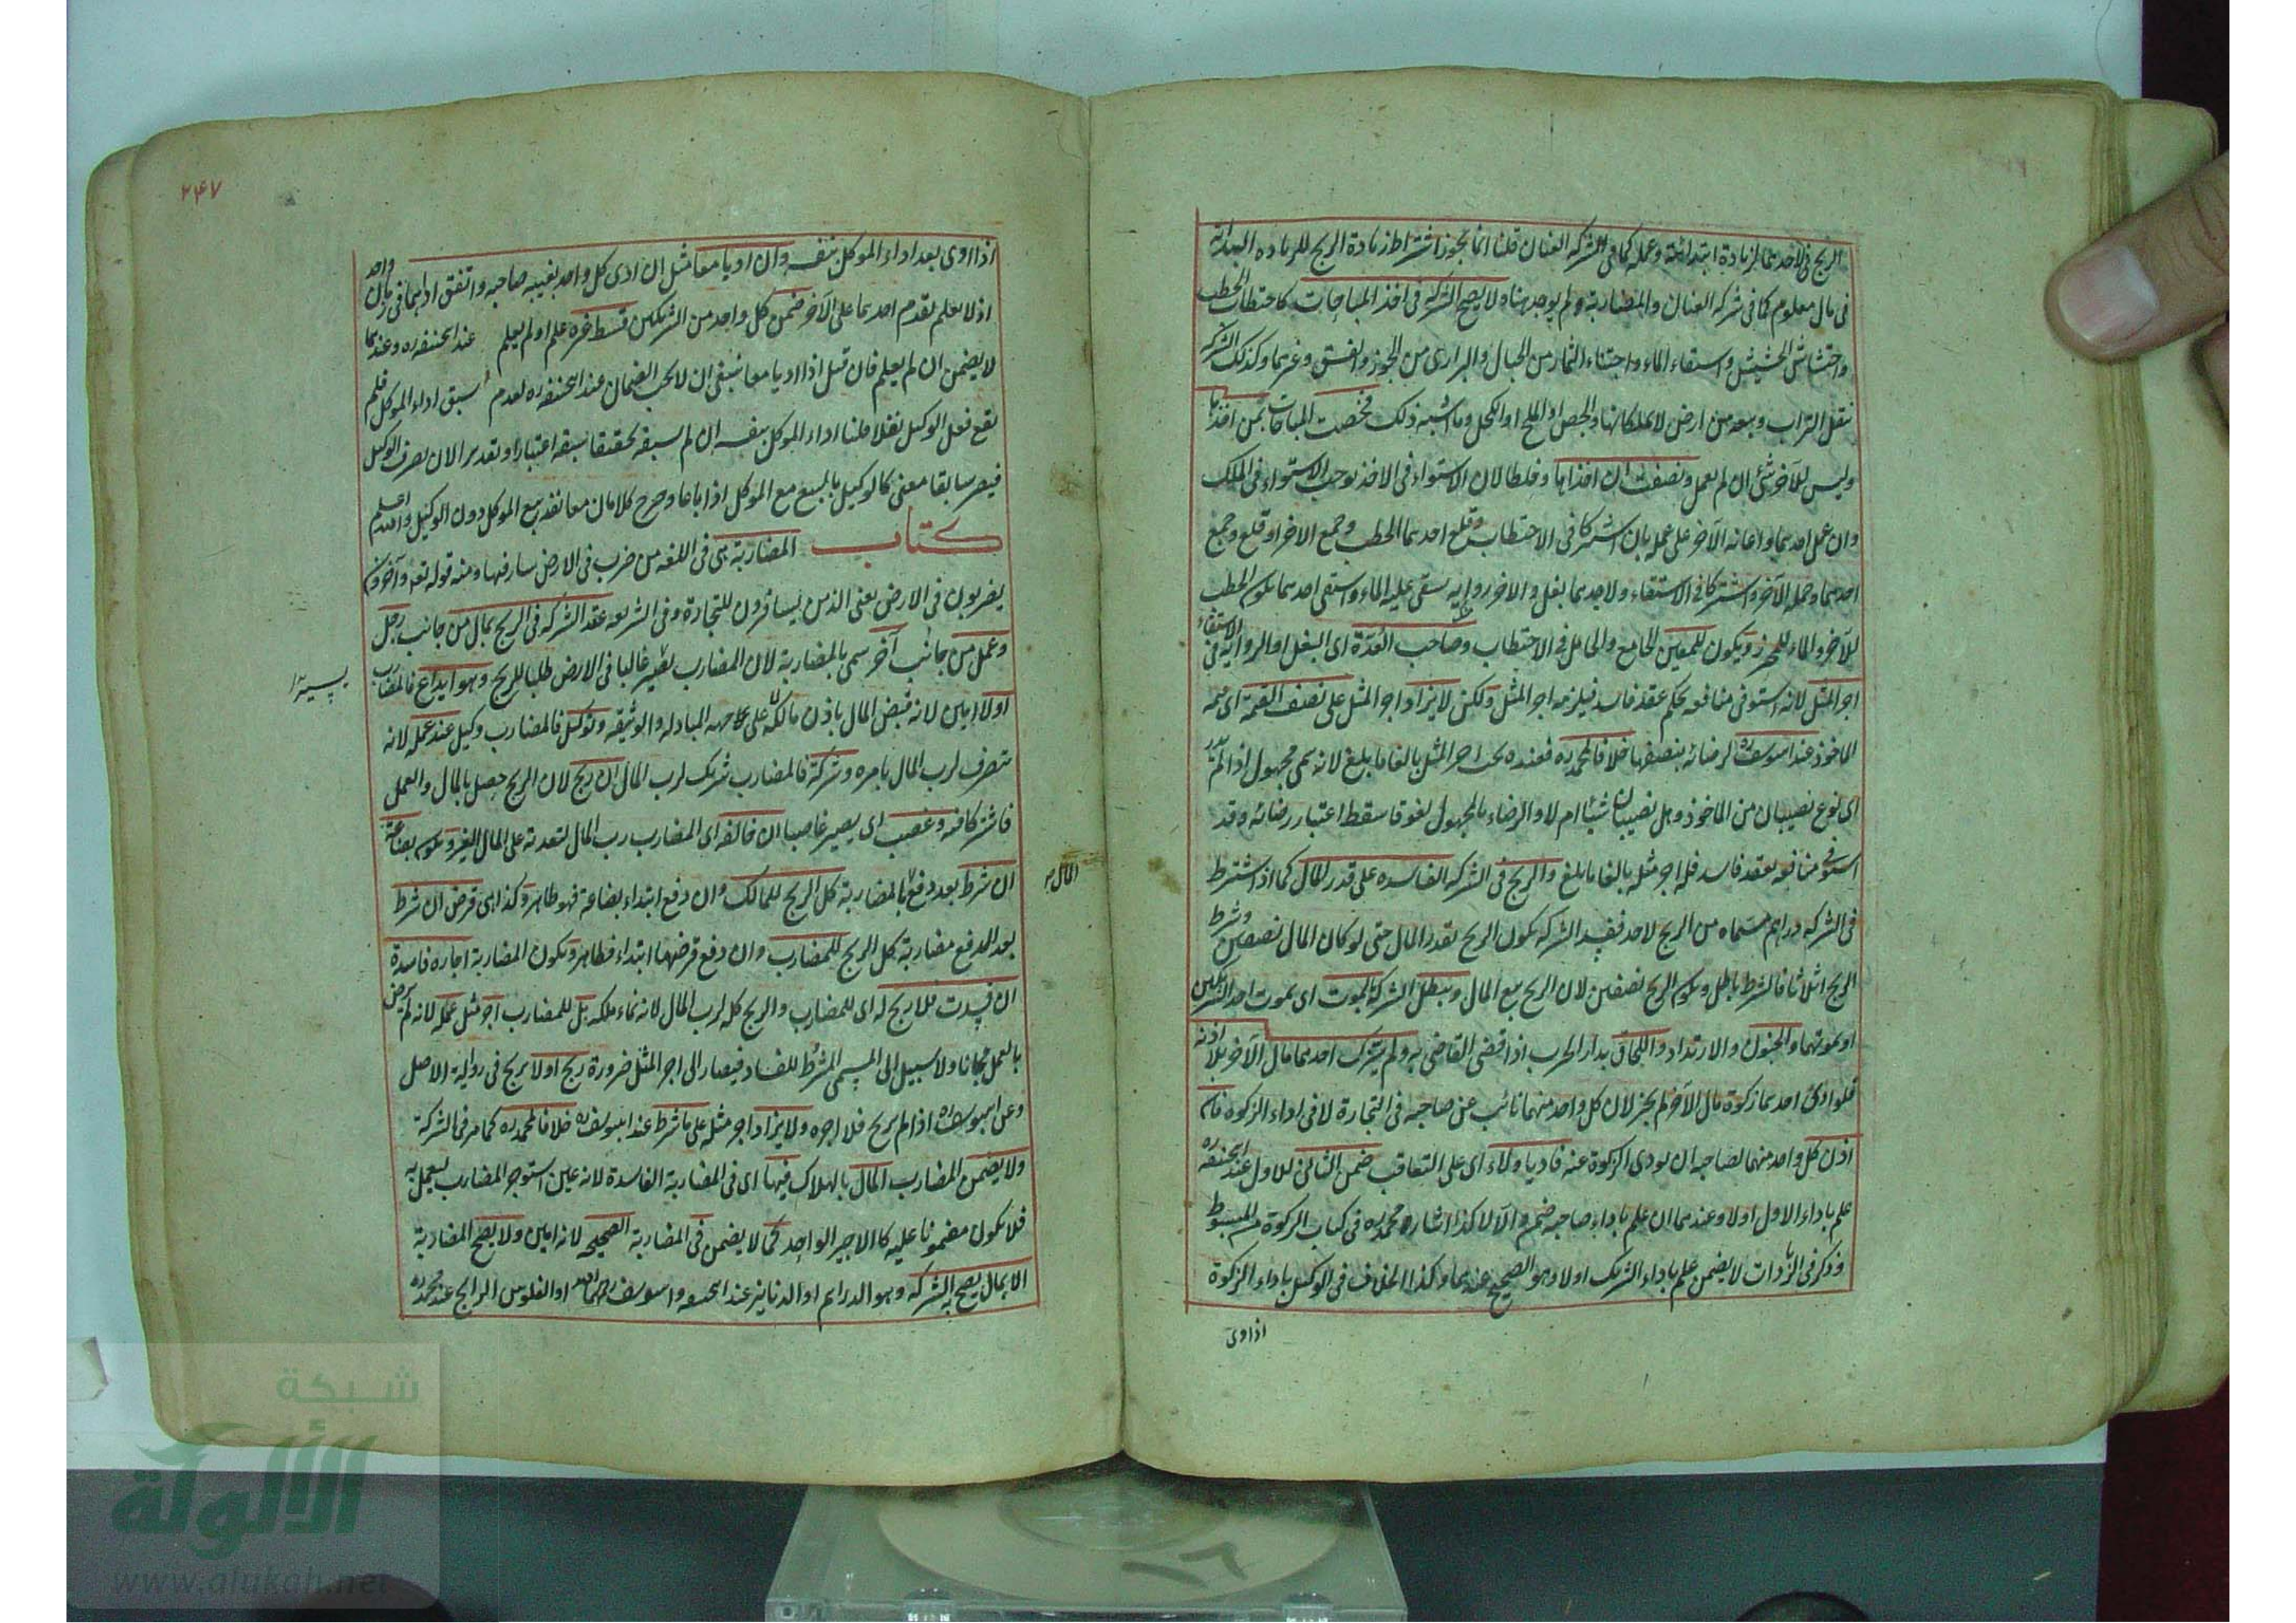 الربح فى لاحدهما لزيادة ابتدائية وعمله كما فى الشركه العنان قلنا انما يجوز اشتراط زيادة الربح للزياده البدايه
فى مال معلوم كما فى شركه العنان والمضاربة ولم يوجد هنا ولا يصح الشركة فى اخذ المباحات كاحتطاب الحطب
واحتشاش الحشيش واستقاء الماء واجتناء الثمار من الجبال والبرارى من الجوز والفستق وغيرهما وكذلك الشركة
بنقل التراب وبيعه من ارض لا يملكانها والجص او الملح او الكحل وما اشبه ذلك فخصت المباحات بمن اخذها
وليس للآخر شئ ان لم يعمل ونصفت ان اخذاها وخلطا لان الاستواء فى الاخذ يوجب الاستواء فى الملك
وان عمل احدهما واعانه الآخر على عمله بان اشتركا فى الاحتطاب وقلع احدهما الحطب وجمع الاخر او قلع وجمع
احدهما وحمله الآخر واشتركا فى الاستقاء ولاحدهما بغل والاخر رواية يستقى عليه الماء واستقى احدهما يكون الحطب
للآخر والماء للمحرز ويكون للمعين للجامع والحامل فى الاحتطاب وصاحب العُدّة اى البغل او الرواية فى الاستقاء
اجر المثل لانه استوفى منافعه بحكم عقد فاسد فيلزمه اجر المثل ولكن لا يزاد اجر المثل على نصف القيمة اى قيمة
الماخوذ عند ابى يوسف ره لرضائه بنصفها خلافا لمحمد ره فعنده يجب اجر المثل بالغا ما بلغ لانه سمى مجهول اذ لم يدر
اى نوع نصيبان من الماخوذ وهل نصيبان شيئا ام لا والرضاء بالمجهول لغو فاسقط اعتبار رضائه وقد
استوفى منافعه بعقد فاسد فله اجر مثله بالغا ما بلغ والربح فى الشركه الفاسده على قدر المال كما اذا اشترط
فى الشركه دراهم مسماه من الربح لاحد فتفسد الشركه يكون الربح بقدر المال حتى لو كان المال نصفين وشرط
الربح اثلاثا فالشرط باطل ويكون الربح نصفين لان الربح تبع المال وتبطل الشركة بالموت اى بموت احد الشريكين
او بموتهما والجنون والارتداد واللحاق بدار الحرب اذا قضى القاضى به ولم يترك احدهما مال الآخر بلا اذنه
فلو ادى احدهما زكوة مال الآخر لم يجز لان كل واحد منهما نائب عن صاحبه فى التجارة لا فى اداء الزكوة فان
اذن كل واحد منهما لصاحبه ان يودى الزكوة عنه فاديا ولاء اى على التعاقب ضمن الثانى للاول عند ابى حنيفه ره
علم باداء الاول اولا وعندهما ان علم باداء صاحبه ضمن والا لا كذا اشار محمد ره فى كتاب الزكوة من المبسوط
وذكر فى الزيادات لا يضمن علم باداء الشريك او لا وهو الصحيح عندهما وكذا الخلاف فى الوكيل باداء الزكوة
اذا ادى
٢٤٧
اذا ادى بعد اداء الموكل بنفسه وان اديا معا مثل ان ادى كل واحد بغيبه صاحبه واتفق اداؤهما فى زمان واحد
اذ لا يعلم تقدم احدهما على الآخر ضمن كل واحد من الشريكين قسط غيره علم او لم يعلم عند ابى حنيفه ره وعندهما
لا يضمن ان لم يعلم فان قيل اذا اديا معا ينبغى ان لا يجب الضمان عند ابى حنيفه ره لعدم سبق اداء الموكل فلم
يقع فعل الوكيل نفلا قلنا اداء الموكل بنفسه ان لم يسبقه تحقيقا سبقه اعتبارا وتقديرا لان تصرف الوكيل
فيصير سابقا معنى كالوكيل بالبيع مع الموكل اذا باعا وخرج كلامان معا نفذ بيع الموكل دون الوكيل والله اعلم
كتاب المضاربة هى فى اللغه من ضرب فى الارض سار فيها ومنه قوله تعالى وآخرون
يضربون فى الارض يعنى الذين يسافرون للتجارة وفى الشريعه عقد الشركه فى الربح بمال من جانب رجل
وعمل من جانب آخر سمى بالمضاربة لان المضارب يسير غالبا فى الارض طلبا للربح وهو ايداع فالمضارب
يسير
اولا امين لانه قبض المال باذن مالكه لا على جهه المبادله والوثيقه وتوكيل فالمضارب وكيل عند عمله لانه
متصرف لرب المال بامره وشركة فالمضارب شريك لرب المال ان ربح لان الربح حصل بالمال والعمل
فاشتركا فيه وغصب اى يصير غاصبا ان خالفه اى المضارب رب المال لتعديه على المال الغير ويكون بضاعة
ان شرط بعد دفع المال بالمضاربة كل الربح للمالك وان دفع ابتداء بضاعة فهو ظاهر وكذا هى قرض ان شرط
بعد الدفع مضاربة كل الربح للمضارب وان دفع قرضها ابتداء فظاهر وتكون المضاربة اجاره فاسدة
ان فسدت فلا ربح له اى للمضارب والربح كله لرب المال لانه نماء ملكه بل للمضارب اجر مثل عمله لانه لم يرض
بالعمل مجانا ولا سبيل الى المسمى المشرط للفساد فيصار الى اجر المثل ضرورة ربح اولا يربح فى رواية الاصل
وعن ابى يوسف ره اذا لم يربح فلا اجره ولا يزاد اجر مثله على ما شرط عند ابى يوسف ره خلافا لمحمد ره كما مر فى الشركة
ولا يضمن المضارب المال بالهلاك فيها اى فى المضاربة الفاسدة لانه عين استوجر المضارب ليعمل به
فلا يكون مضمونا عليه كالاجير الواحد كما لا يضمن فى المضاربة الصحيحه لانه امين ولا يصح المضاربة
الا بمال يصح به الشركه وهو الدراهم او الدنانير عند ابى حنيفه وابى يوسف رحمهما الله او الفلوس الرابج عند محمد ره
شبكة
الألولة
www.alukah.net